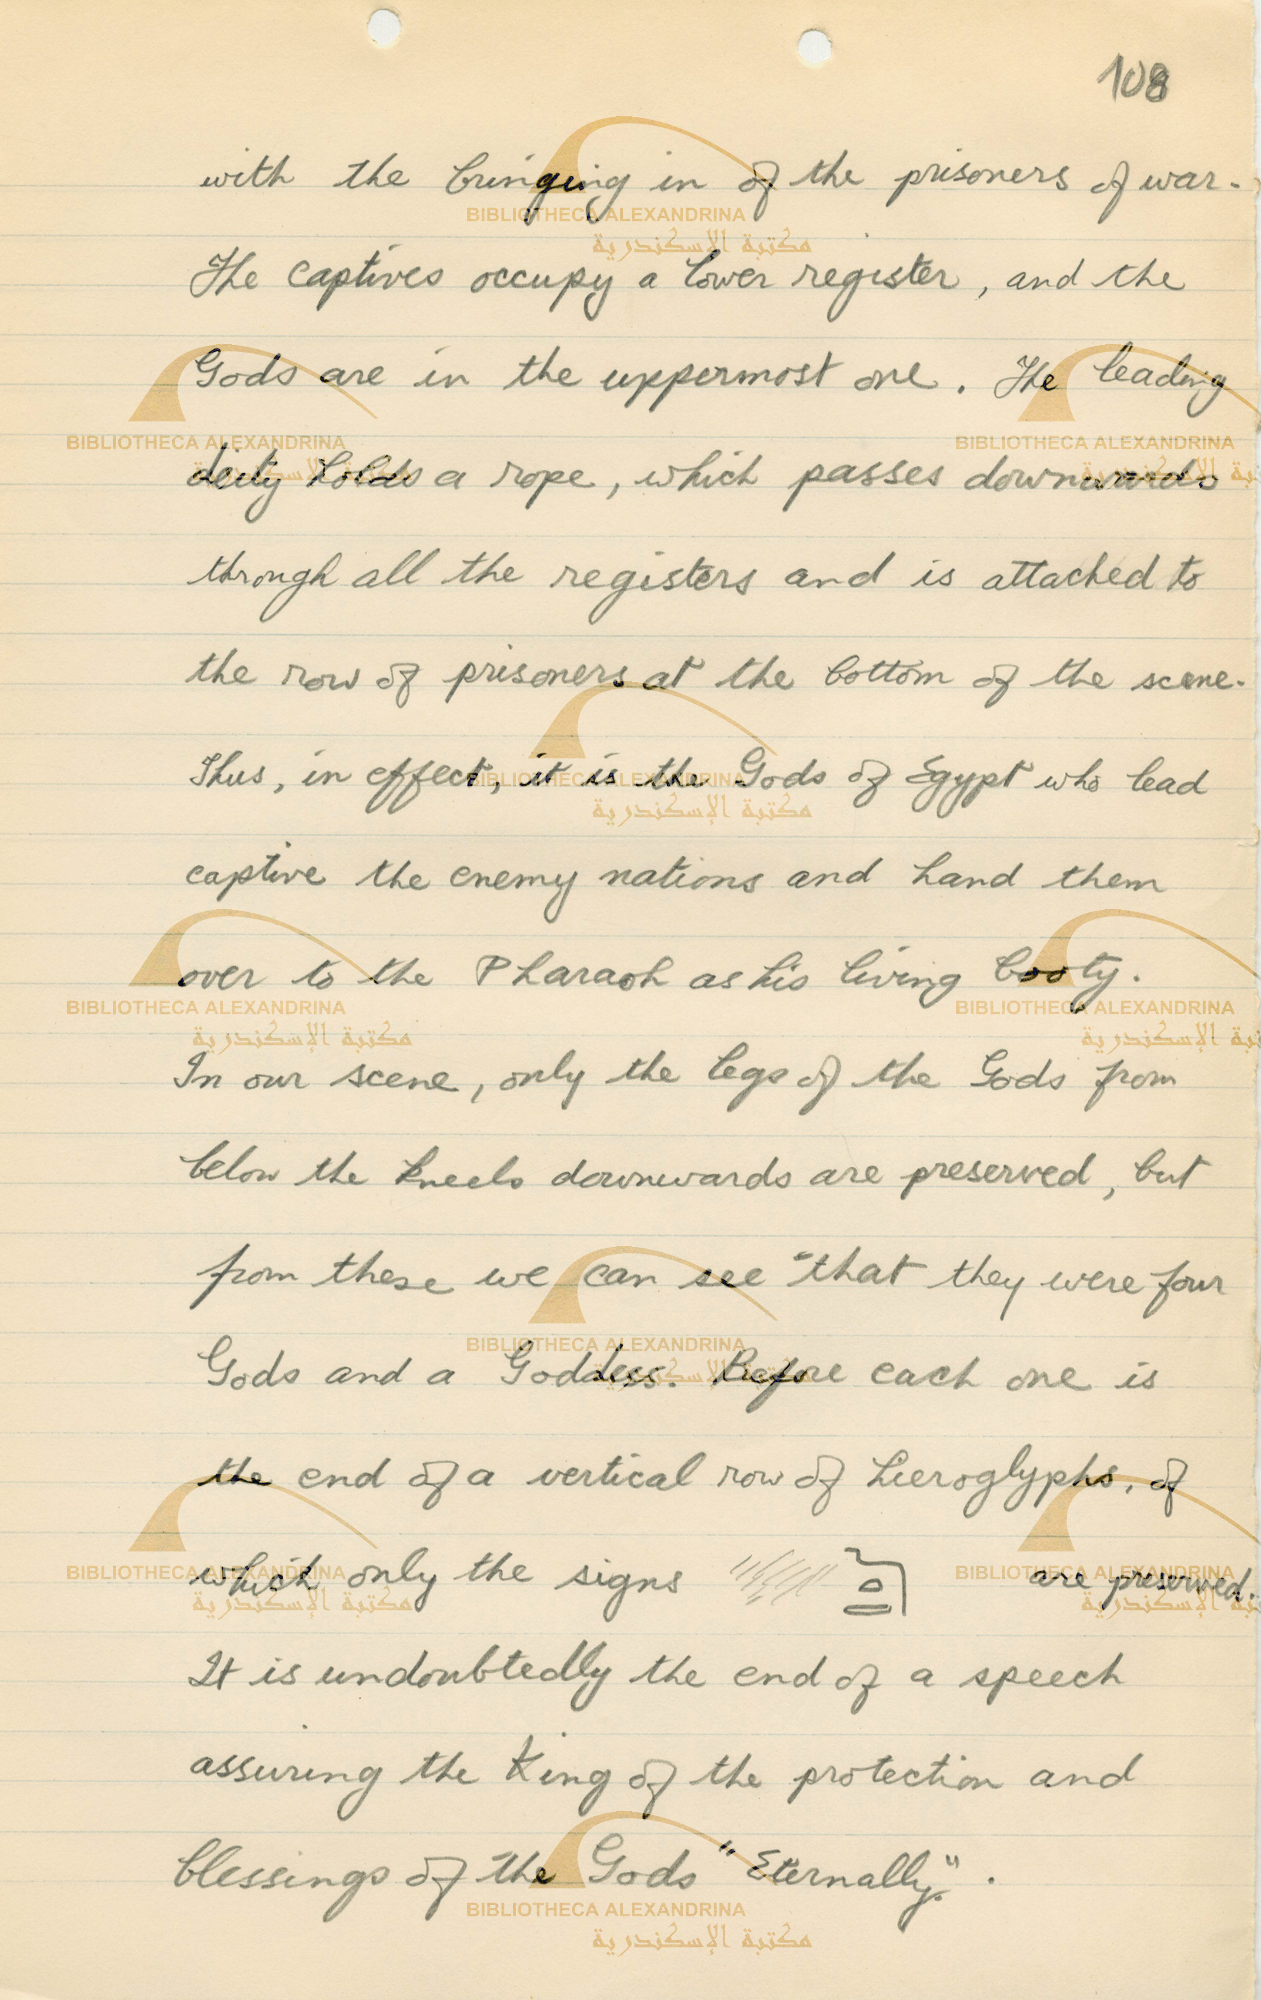 108
with the bringing in of the prisoners of war.
The captives occupy a lower register, and the
Gods are in the uppermost one. The leading
deity holds a rope, which passes downwards
through all the registers and is attached to
the row of prisoners at the bottom of the scene.
Thus, in effect, it is the Gods of Egypt who lead
captive the enemy nations and hand them
over to the Pharaoh as his living booty.
In our scene, only the legs of the Gods from
below the kneels downwards are preserved, but
from these we can see that they were four
Gods and a Goddess. Before each one is
the end of a vertical row of hieroglyphs, of
which only the signs are preserved.
It is undoubtedly the end of a speech
assuring the King of the protection and
blessings of the Gods "Eternally".
BIBLIOTHECA ALEXANDRINA
مكتبة الإسكندرية